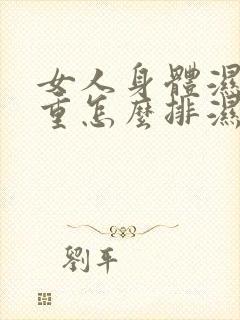 女人身體濕
重怎麼排濕
劉平